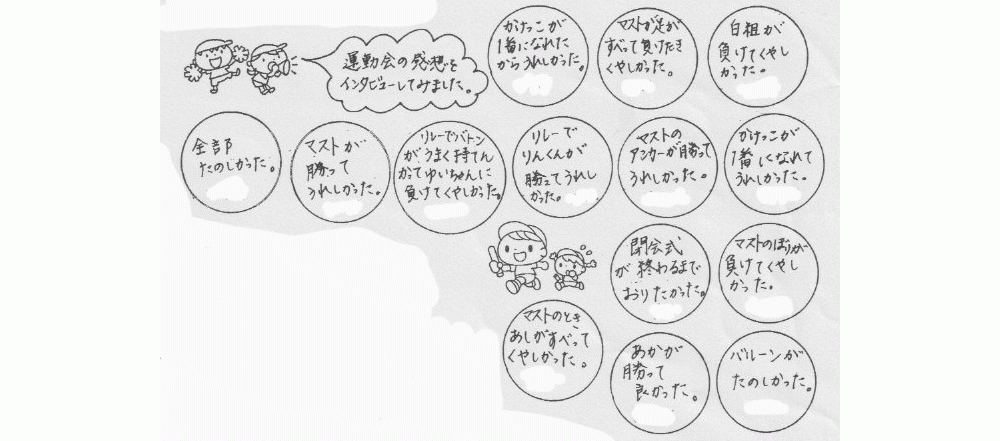 運動会の感想を
インタビューしてみました。
かけっこが
1番になれた
からうれしかった。
マストが足が
すべって負けたき
くやしかった。
白組が
負けてくやし
かった。
全部
たのしかった。
マストが
勝って
うれしかった。
リレーでバトン
がうまく持てん
かってゆいちゃんに
負けてくやしかった。
リレーで
りんくんが
勝ってうれし
かった。
マストの
アンカーが勝って
うれしかった。
かけっこが
1番になれて
うれしかった。
閉会式
が終わるまで
おりたかった。
マストのぼりが
負けてくやし
かった。
マストのとき
あしがすべって
くやしかった。
あかが
勝って
良かった。
バルーンが
たのしかった。